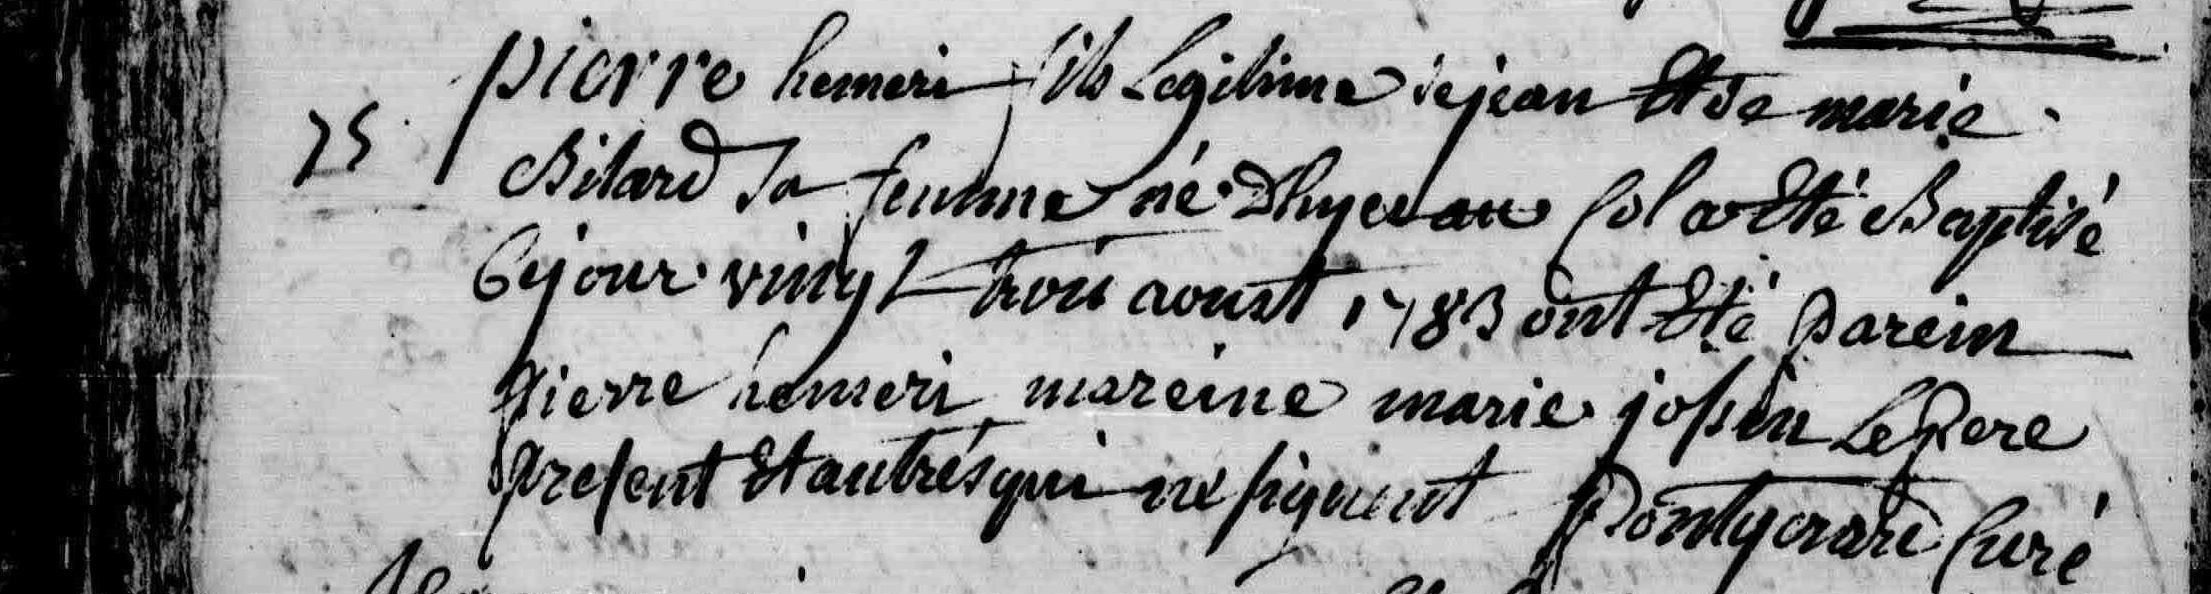 75
pierre hemeri fils legitime de jean Et de marie
Bilard sa femme né Dhyer au sol a Eté Baptisé
Cejour vingt trois aoust 1783 ont Eté parein
pierre hemeri mareine marie Le pere
present Et autres qui ne signent curé